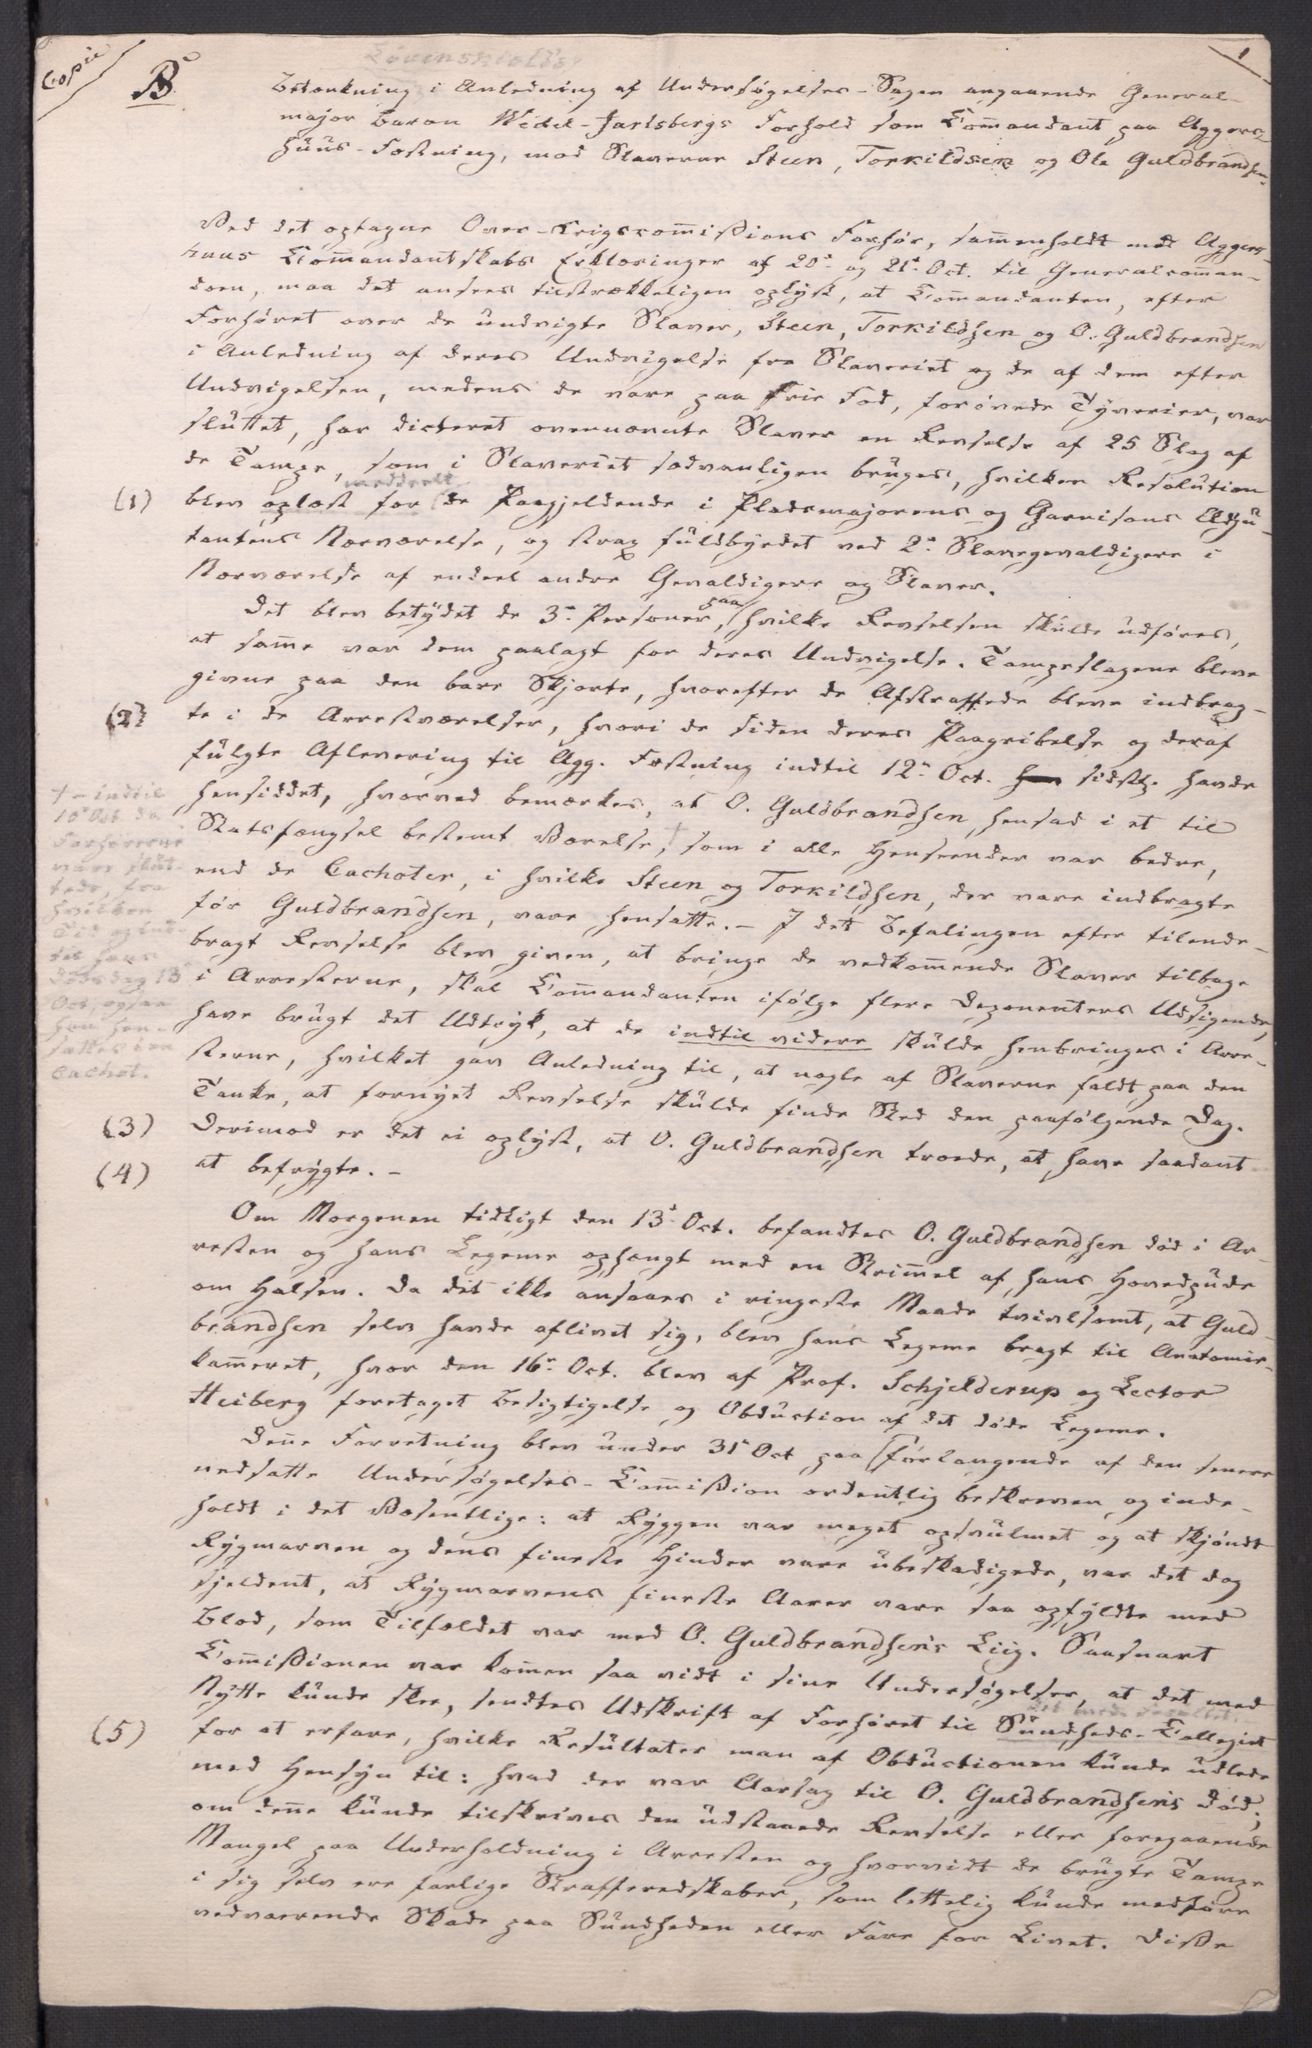 Copie
1
B.
Løvenskiolds
Betænkning i Anledning af Undersøgelses-Sagen angaaende General-
major Baron Wedel-Jarlsbergs Forhold som Commandant paa Aggers-
huus-Fæstning, mod Slaverne Steen, Torkildsen og Ole Guldbrandsen.
Ved det optagne Over-Krigscommissions Forhør, sammenholdt med Aggers-
huus Commandantskabs Erklæringer af 20de og 21de Oct. til Generalcomman-
doen, maa det ansees tilstrækkeligen oplyst, at Commandanten, efter
Forhøret over de undvigte Slaver, Steen, Torkildsen og O. Guldbrandsen
i Anledning af deres Undvigelse fra Slaveriet og de af dem efter
Undvigelsen, medens de vare paa frie Fod, forøvede Tyverier, var
sluttet, har dicteret overnævnte Slaver en Revselse af 25 Slag af
de Tampe, som i Slaveriet sædvanligen bruges, hvilken Resolution
meddeelt
(1) blev oplæst for de Paagjeldende i Pladsmajorens og Garnisons Adju-
tantens Nærværelse, og strax fuldbyrdet ved 2de Slavegevaldigere i
Nærværelse af endeel andre Gevaldigere og Slaver.
Det blev betydet de 3de Personer, paa hvilke Revselsen skulde udføres,
at samme var dem paalagt for deres Undvigelse. Tampeslagene bleve
givne paa den bare Skjorte, hvorefter de Afstraffede bleve indbrag-
(2) te i de Arrestværelser, hvori de siden deres Paagribelse og deraf
fulgte Aflevering til Agg. Fæstning indtil 12te Oct. sidstl. havde
hensiddet, hvorved bemærkes, at O. Guldbrandsen hensad i et til
Statsfængsel bestemt Værelse, † som i alle Henseender var bedre,
end de Cachoter, i hvilke Steen og Torkildsen, der vare indbragte
før Guldbrandsen, vare hensatte. – I det Befalingen efter tilende-
bragt Revselse blev given, at bringe de vedkommende Slaver tilbage
i Arresterne, skal Commandanten ifølge flere Deponenters Udsigende,
have brugt det Udtryk, at de indtil videre skulde henbringes i Arre-
sterne, hvilket gav Anledning til, at nogle af Slaverne faldt paa den
Tanke, at fornyet Revselse skulde finde Sted den paafølgende Dag.
† – indtil
10de Oct. da
Forhørerne
vare slut-
tede, fra
hvilken
Tid og ind-
til hans
Dødsdag 13de
Oct. ogsaa
han hen-
sattes i en
Cachot.
(3) Derimod er det ei oplyst, at O. Guldbrandsen troede, at have saadant
(4) at befrygte. –
Om Morgenen tidligt den 13de Oct. befandtes O. Guldbrandsen død i Ar-
resten og hans Legeme ophængt med en Strimmel af hans Hovedpude
om Halsen. Da det ikke ansaaes i ringeste Maade tvivlsomt, at Guld-
brandsen selv havde aflivet sig, blev hans Legeme bragt til Anatomie-
kammeret, hvor den 16de Oct. blev af Prof. Schjelderup og Lector
Heiberg foretaget Besigtigelse og Obduction af det døde Legeme.
Denne Forretning blev under 31te Oct paa Forlangende af den senere
nedsatte Undersøgelses-Commission ordentlig beskreven og inde-
holdt i det Væsentlige: at Ryggen var meget opsvulmet og at skjøndt
Rygmarven og dens fineste Hinder vare ubeskadigede, var det dog
sjeldent, at Rygmarvens fineste Aarer vare saa opfyldte med
Blod, som Tilfældet var med O. Guldbrandsens Liig. Saasnart
Commissionen var kommen saa vidt i sine Undersøgelser, at det med
Nytte kunde skee, sendtes Udskrift af Forhøret til Sundheds-Collegiet
det med. Facultet
(5) for at erfare, hvilke Resultater man af Obductionen kunde udlede
med Hensyn til: hvad der var Aarsag til O. Guldbrandsens Død;
om denne kunde tilskrives den udstaaede Revselse eller foregaaende
Mangel paa Underholdning i Arresten og hvorvidt de brugte Tampe
i sig selv ere farlige Strafferedskaber, som lettelig kunde medføre
vedvarende Skade paa Sundheden eller Fare for Livet. Disse